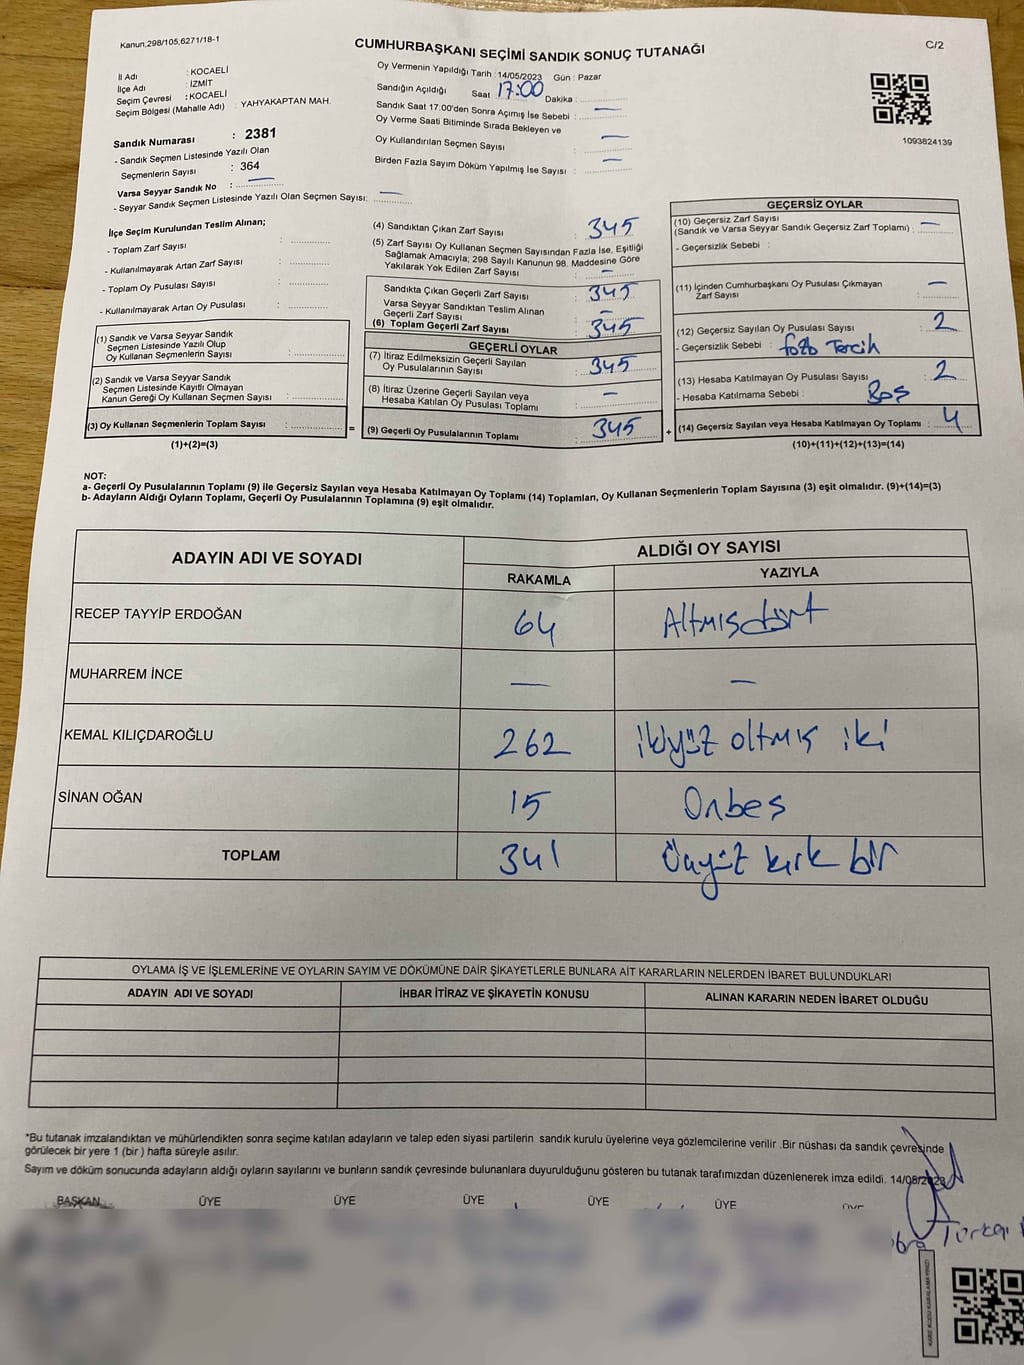 Kanun,298/105,6271/18-1
CUMHURBAŞKANI SEÇİMİ SANDIK SONUÇ TUTANAĞI
C/2
İl Adı : KOCAELİ
İlçe Adı : İZMİT
Seçim Çevresi : KOCAELİ
Seçim Bölgesi (Mahalle Adı) : YAHYAKAPTAN MAH.
Sandık Numarası : 2381
- Sandık Seçmen Listesinde Yazılı Olan
Seçmenlerin Sayısı : 364
Varsa Seyyar Sandık No : —
- Seyyar Sandık Seçmen Listesinde Yazılı Olan Seçmen Sayısı: —
Oy Vermenin Yapıldığı Tarih : 14/05/2023 Gün : Pazar
Sandığın Açıldığı Saat 17:00 Dakika :
Sandık Saat 17:00'den Sonra Açılmış İse Sebebi : —
Oy Verme Saati Bitiminde Sırada Bekleyen ve
Oy Kullandırılan Seçmen Sayısı : —
Birden Fazla Sayım Döküm Yapılmış İse Sayısı : —
1093824139
İlçe Seçim Kurulundan Teslim Alınan;
- Toplam Zarf Sayısı :
- Kullanılmayarak Artan Zarf Sayısı :
- Toplam Oy Pusulası Sayısı :
- Kullanılmayarak Artan Oy Pusulası :
(1) Sandık ve Varsa Seyyar Sandık
Seçmen Listesinde Yazılı Olup
Oy Kullanan Seçmenlerin Sayısı :
(2) Sandık ve Varsa Seyyar Sandık
Seçmen Listesinde Kayıtlı Olmayan
Kanun Gereği Oy Kullanan Seçmen Sayısı :
(3) Oy Kullanan Seçmenlerin Toplam Sayısı :
(1)+(2)=(3)
=
(4) Sandıktan Çıkan Zarf Sayısı : 345
(5) Zarf Sayısı Oy Kullanan Seçmen Sayısından Fazla İse, Eşitliği
Sağlamak Amacıyla; 298 Sayılı Kanunun 98. Maddesine Göre
Yakılarak Yok Edilen Zarf Sayısı : —
Sandıkta Çıkan Geçerli Zarf Sayısı : 345
Varsa Seyyar Sandıktan Teslim Alınan
Geçerli Zarf Sayısı : —
(6) Toplam Geçerli Zarf Sayısı : 345
GEÇERLİ OYLAR
(7) İtiraz Edilmeksizin Geçerli Sayılan
Oy Pusulalarının Sayısı : 345
(8) İtiraz Üzerine Geçerli Sayılan veya
Hesaba Katılan Oy Pusulası Toplamı : —
(9) Geçerli Oy Pusulalarının Toplamı : 345
+
GEÇERSİZ OYLAR
(10) Geçersiz Zarf Sayısı
(Sandık ve Varsa Seyyar Sandık Geçersiz Zarf Toplamı) : —
- Geçersizlik Sebebi :
(11) İçinden Cumhurbaşkanı Oy Pusulası Çıkmayan
Zarf Sayısı : —
(12) Geçersiz Sayılan Oy Pusulası Sayısı : 2
- Geçersizlik Sebebi : Tercih
(13) Hesaba Katılmayan Oy Pusulası Sayısı : 2
- Hesaba Katılmama Sebebi : Boş
(14) Geçersiz Sayılan veya Hesaba Katılmayan Oy Toplamı : 4
(10)+(11)+(12)+(13)=(14)
NOT:
a- Geçerli Oy Pusulalarının Toplamı (9) ile Geçersiz Sayılan veya Hesaba Katılmayan Oy Toplamı (14) Toplamları, Oy Kullanan Seçmenlerin Toplam Sayısına (3) eşit olmalıdır. (9)+(14)=(3)
b- Adayların Aldığı Oyların Toplamı, Geçerli Oy Pusulalarının Toplamına (9) eşit olmalıdır.
ADAYIN ADI VE SOYADI
ALDIĞI OY SAYISI
RAKAMLA YAZIYLA
RECEP TAYYİP ERDOĞAN 64 Altmışdört
MUHARREM İNCE — —
KEMAL KILIÇDAROĞLU 262 ikiyüz altmış iki
SİNAN OĞAN 15 Onbeş
TOPLAM 341 Üçyüz kırk bir
OYLAMA İŞ VE İŞLEMLERİNE VE OYLARIN SAYIM VE DÖKÜMÜNE DAİR ŞİKAYETLERLE BUNLARA AİT KARARLARIN NELERDEN İBARET BULUNDUKLARI
ADAYIN ADI VE SOYADI İHBAR İTİRAZ VE ŞİKAYETİN KONUSU ALINAN KARARIN NEDEN İBARET OLDUĞU
*Bu tutanak imzalandıktan ve mühürlendikten sonra seçime katılan adayların ve talep eden siyasi partilerin sandık kurulu üyelerine veya gözlemcilerine verilir .Bir nüshası da sandık çevresinde
görülecek bir yere 1 (bir ) hafta süreyle asılır.
Sayım ve döküm sonucunda adayların aldığı oyların sayılarını ve bunların sandık çevresinde bulunanlara duyurulduğunu gösteren bu tutanak tarafımızdan düzenlenerek imza edildi. 14/05/2023
BAŞKAN ÜYE ÜYE ÜYE ÜYE ÜYE ÜYE